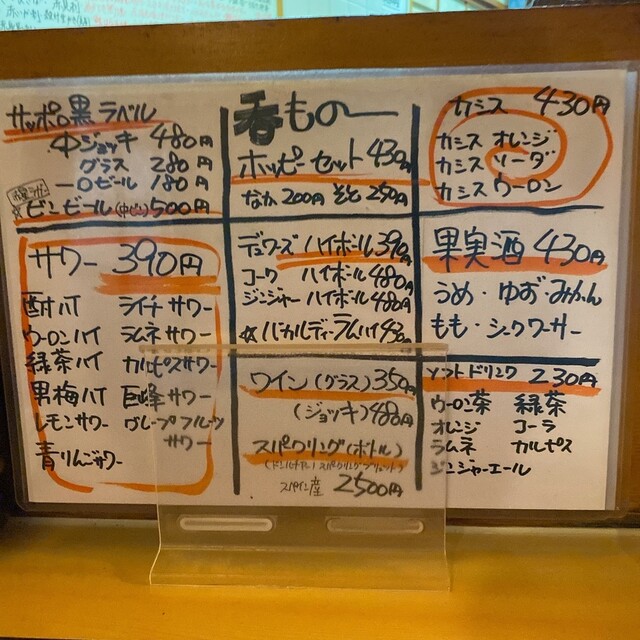 サッポロ黒ラベル
中ジョッキ 480円
グラス 280円
一口ビール 180円
☆ビンビール(中ビン)500円
サワー 390円
酎ハイ ライチサワー
ウーロンハイ ラムネサワー
緑茶ハイ カルピスサワー
男梅ハイ 巨峰サワー
レモンサワー グレープフルーツ
サワー
青りんごサワー
呑もの
ホッピーセット 430円
なか 200円 そと 250円
デュワーズ ハイボール 390円
コーク ハイボール 480円
ジンジャー ハイボール 480円
☆バカルディーラムハイ 430
ワイン(グラス) 350円
(ジョッキ) 480円
スパークリング(ボトル)
スペイン産 2500円
カシス 430円
カシス オレンジ
カシス ソーダ
カシス ウーロン
果実酒 430円
うめ・ゆず・みかん
もも・シークワーサー
ソフトドリンク 230円
ウーロン茶 緑茶
オレンジ コーラ
ラムネ カルピス
ジンジャーエール